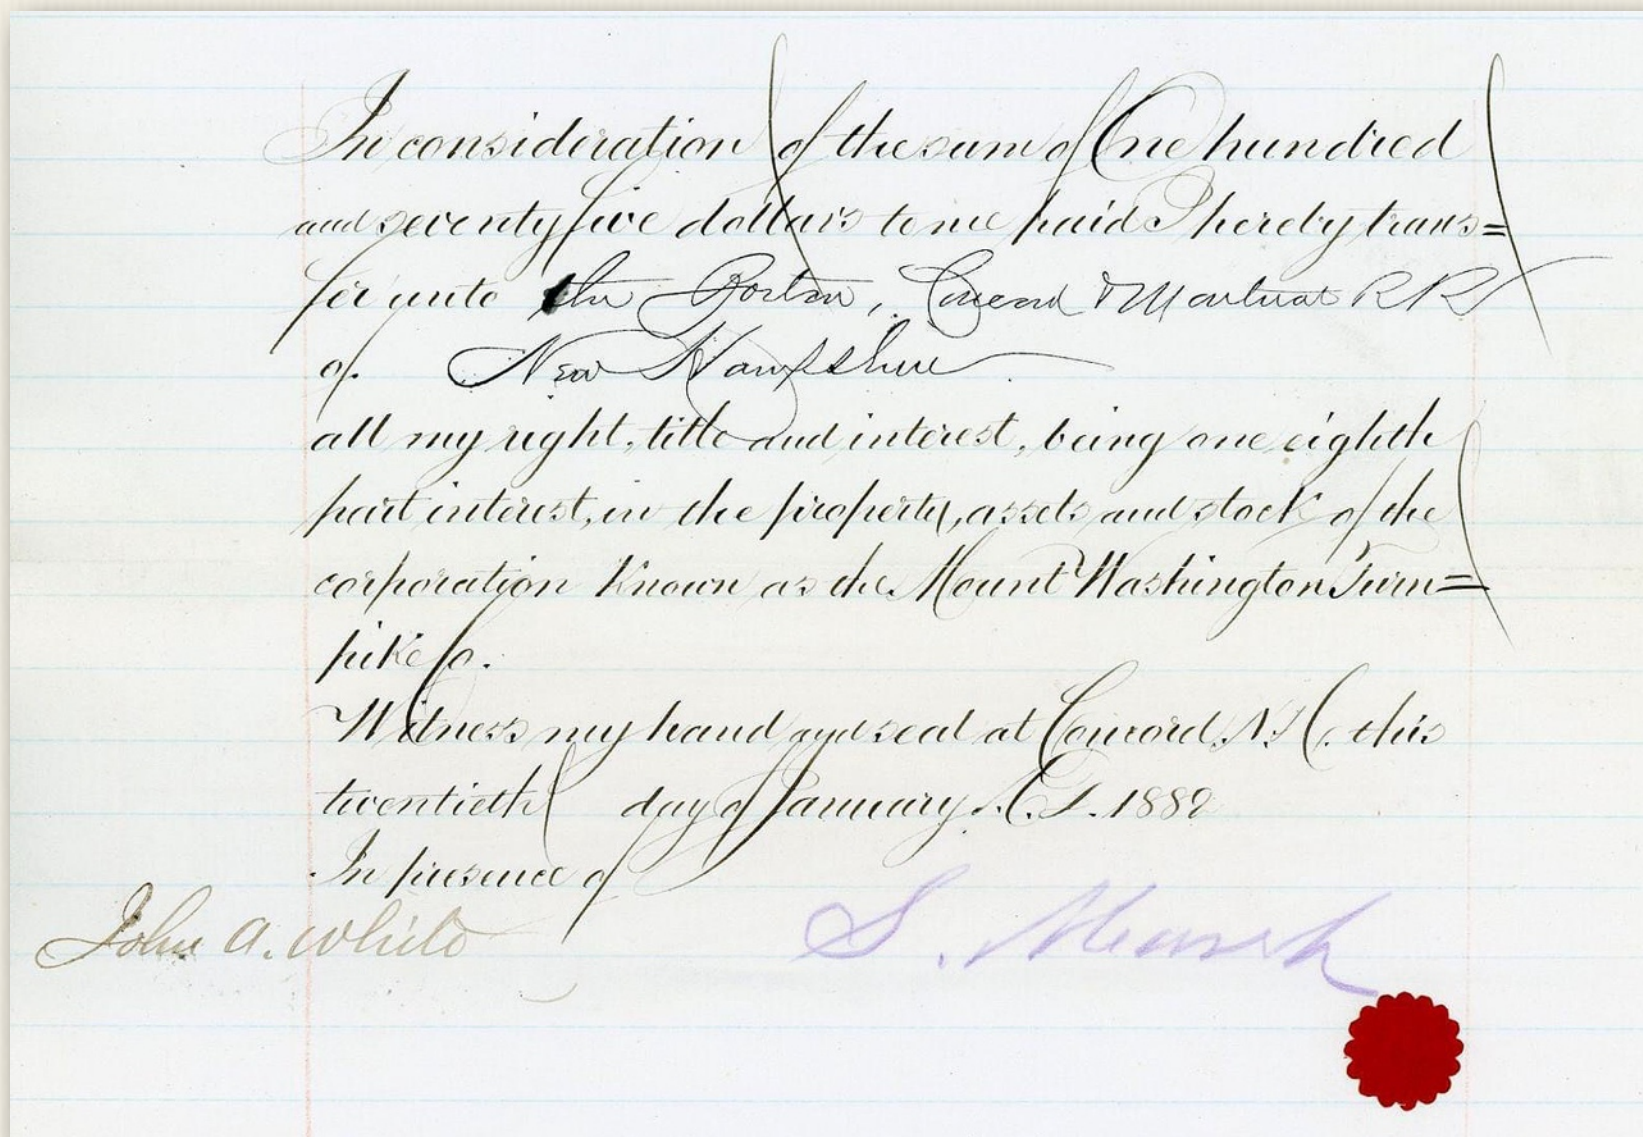 In consideration of the sum of One hundred
and seventy five dollars to me paid I hereby trans=
fer unto the Boston, Concord & Montreal RR
of New Hampshire
all my right, title and interest, being one eighth
part interest, in the property, assets and stock of the
corporation known as the Mount Washington Turn=
pike Co.
Witness my hand and seal at Concord N.H. this
twentieth day of January A.D. 1882
In presence of
John A. White S. Marsh